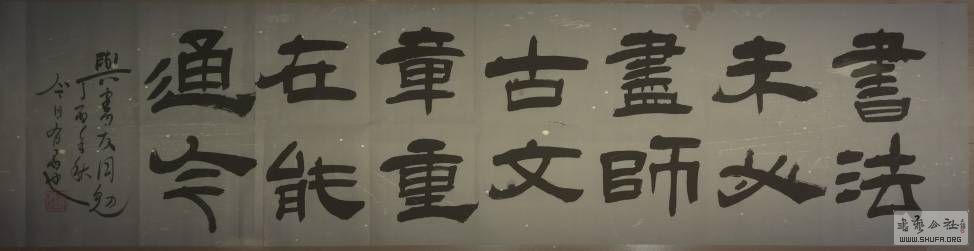 書法
未必
盡師
古文
章重
在能
通今
與書友同勉
丁酉年秋
今日有
书艺公社
WWW.SHUFA.ORG